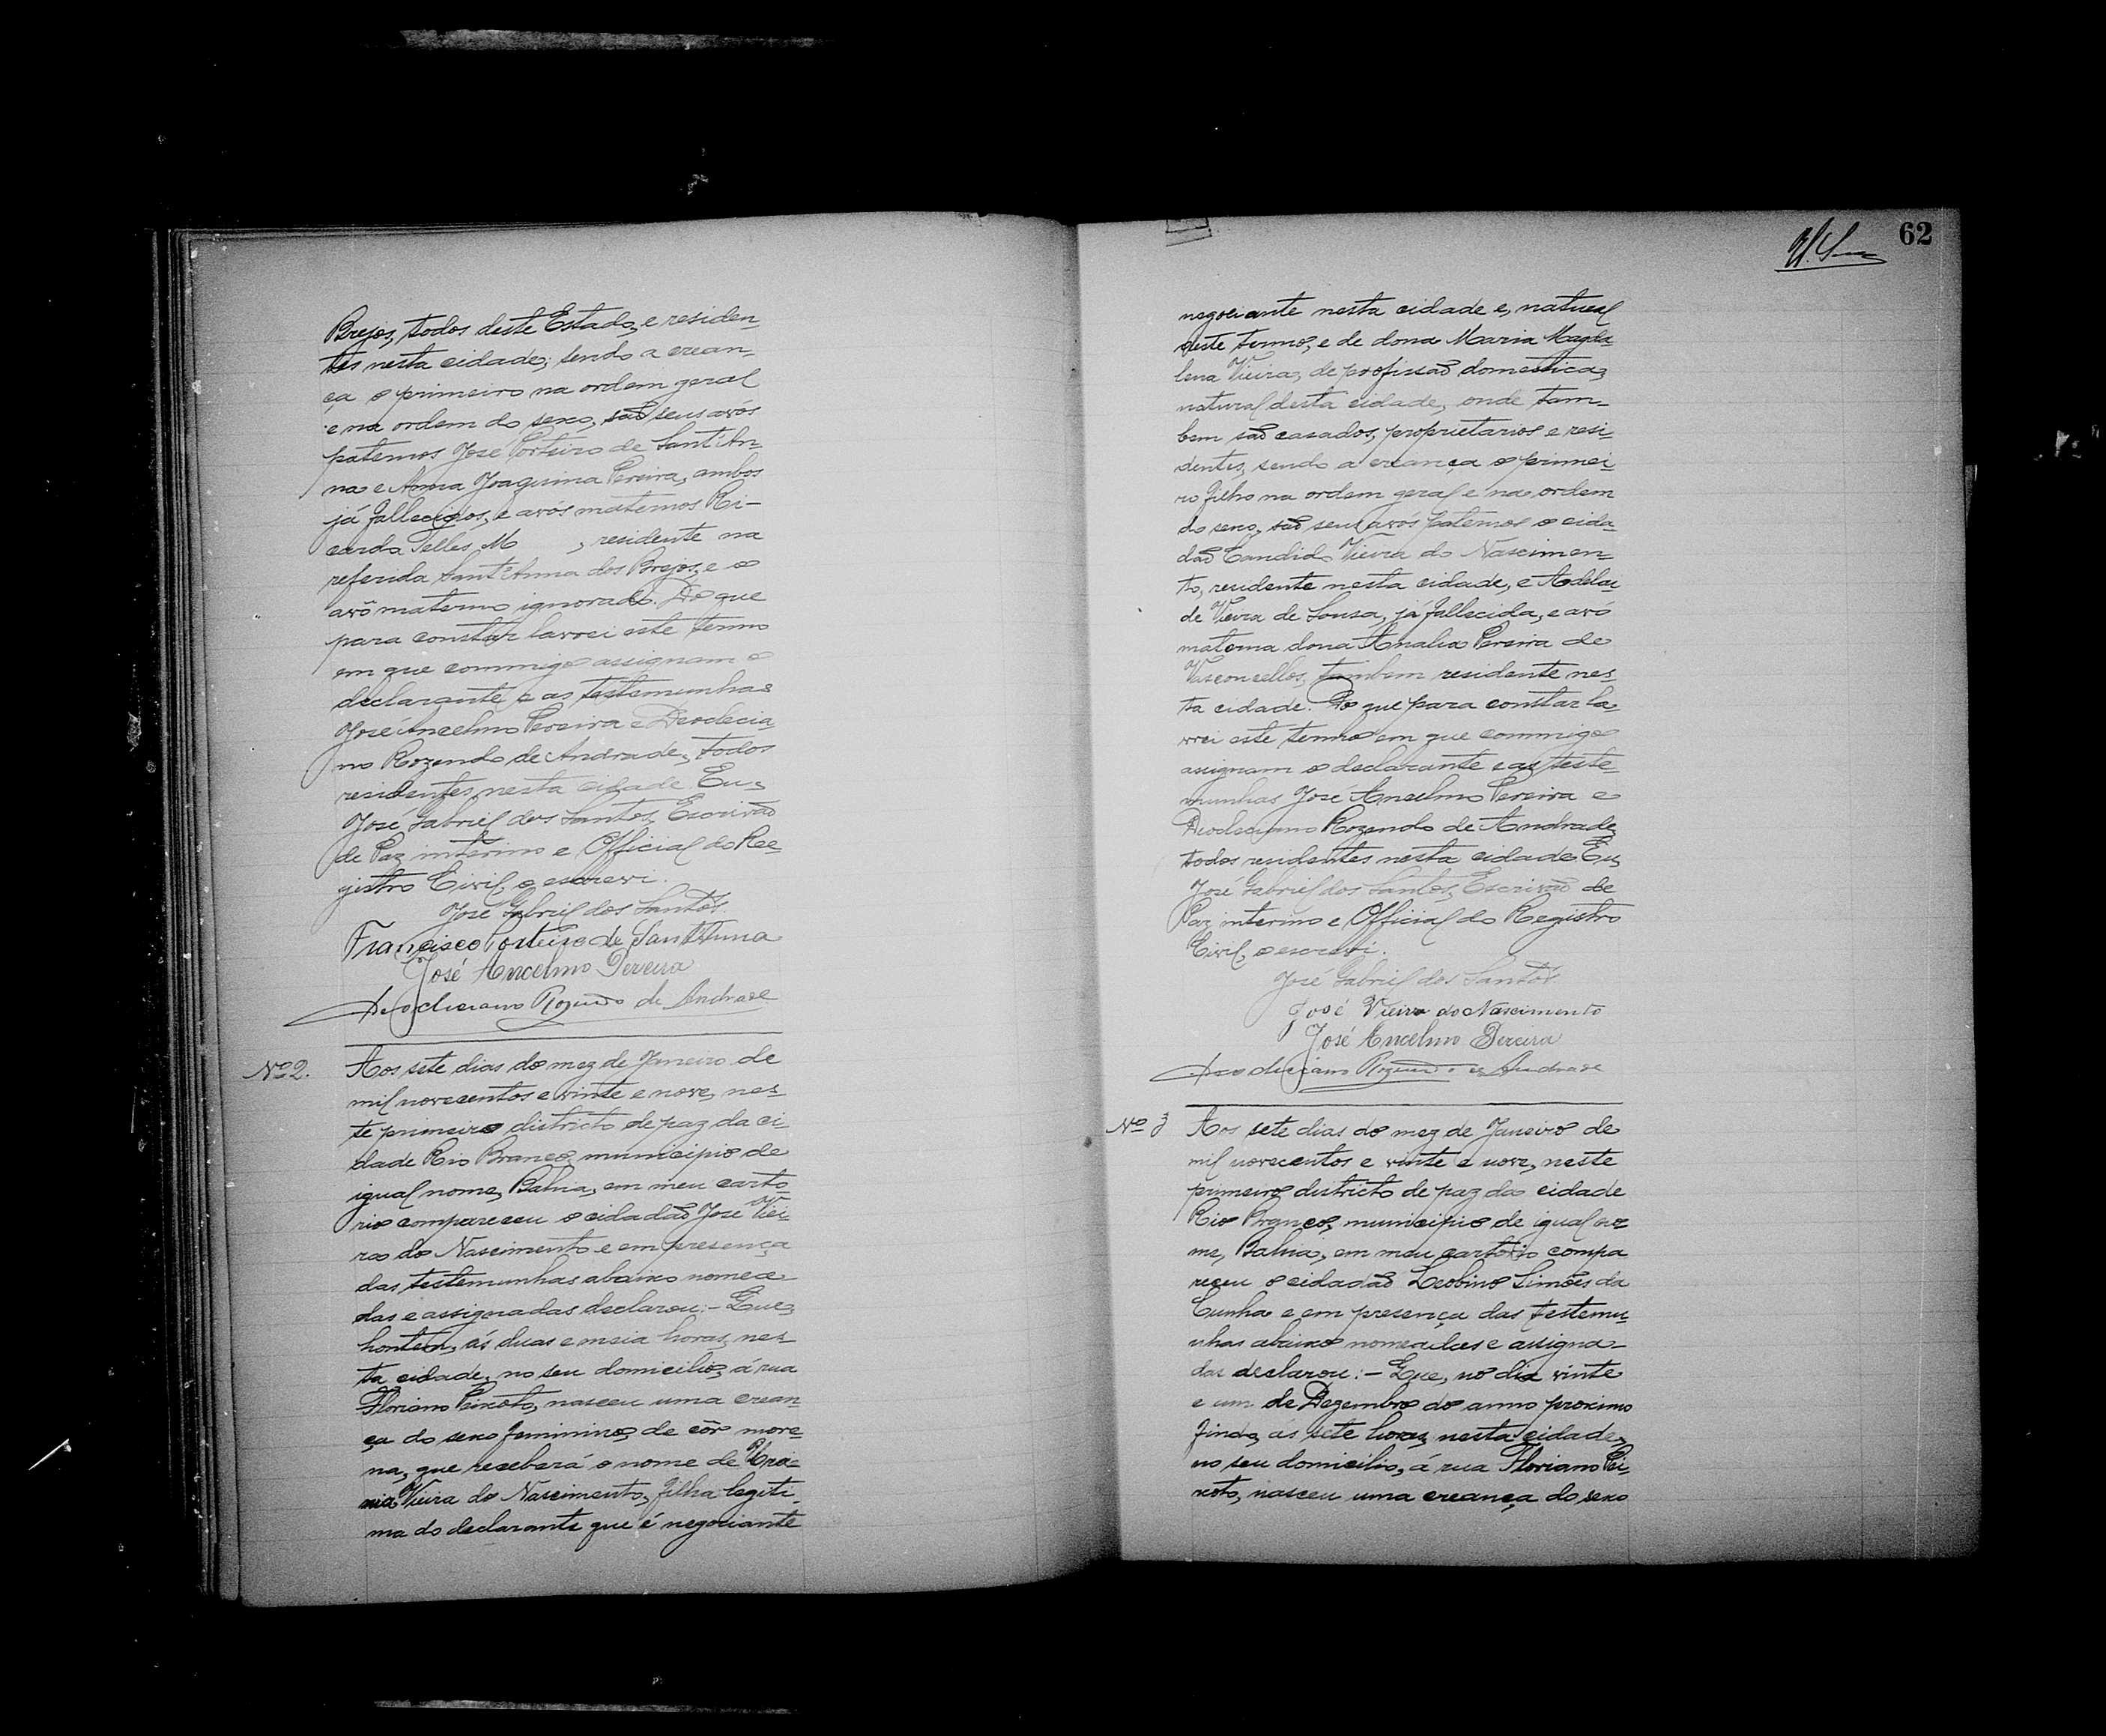 Brejos, todos deste Estado, e residen-
tes nesta cidade; sendo a crean-
ça o primeiro na ordem geral
e na ordem do sexo, são seus avós
paternos José Porteiro de Sant'An-
na e Anna Joaquina Pereira, ambos
já fallecidos, e avós maternos Ri-
carda Telles M , residente na
referida Sant'Anna dos Brejos, e o
avô materno ignorado. Do que
para constar lavrei este termo
em que commigo assignam o
declarante e as testemunhas
José Ancelmo Pereira e Deoclecia-
no Rozendo de Andrade, todos
residentes nesta cidade Eu,
José Gabriel dos Santos, Escrivão
de Paz interino e Official do Re-
gistro Civil, o escrevi.
José Gabriel dos Santos
Francisco Porteiro de Sant'Anna
José Ancelmo Pereira
Deocleciano Rozendo de Andrade
Nº 2. Aos sete dias do mez de Janeiro de
mil novecentos e vinte e nove, nes-
te primeiro districto de paz da ci-
dade Rio Branco, municipio de
igual nome, Bahia, em meu carto
rio compareceu o cidadão José Viei-
ra do Nascimento e em presença
das testemunhas abaixo nomea-
das e assignadas declarou:- Que,
hontem, ás duas e meia horas, nes-
ta cidade, no seu domicilio, á rua
Floriano Peixoto, nasceu uma crean
ça do sexo feminino, de côr more-
na, que receberá o nome de
Vieira do Nascimento, filha legiti-
ma do declarante que é negociante
62
negociante nesta cidade e, natural
deste termo, e de dona Maria Magda-
lena Vieira, de profissão domestica,
natural desta cidade, onde tam-
bem são casados, proprietarios e resi-
dentes, sendo a creança o primei-
ro filho na ordem geral e na ordem
do sexo, são seus avós paternos o cida-
dão Candido Vieira do Nascimen-
to, residente nesta cidade, e Adelai
de Vieira de Sousa, já fallecida, e avó
materna dona Analia Pereira de
Vasconcellos, tambem residente nes-
ta cidade. Do que para constar la-
vrei este termo em que commigo
assignam o declarante e as teste-
munhas José Ancelmo Pereira e
Deocleciano Rozendo de Andrade,
todos residentes nesta cidade. Eu,
José Gabriel dos Santos, Escrivão de
Paz interino e Official do Registro
Civil, o escrevi.
José Gabriel dos Santos
José Vieira do Nascimento
José Ancelmo Pereira
Deocleciano Rozendo de Andrade
Nº 3 Aos sete dias do mez de Janeiro de
mil novecentos e vinte e nove, neste
primeiro districto de paz da cidade
Rio Branco, municipio de igual no-
me, Bahia, em meu cartorio compa
receu o cidadão Leobino Simões da
Cunha e em presença das testemu
nhas abaixo nomeadas e assigna-
das declarou:- Que, no dia vinte
e um de Dezembro do anno proximo
findo, ás sete horas, nesta cidade,
no seu domicilio, á rua Floriano Pei-
xoto, nasceu uma creança do sexo